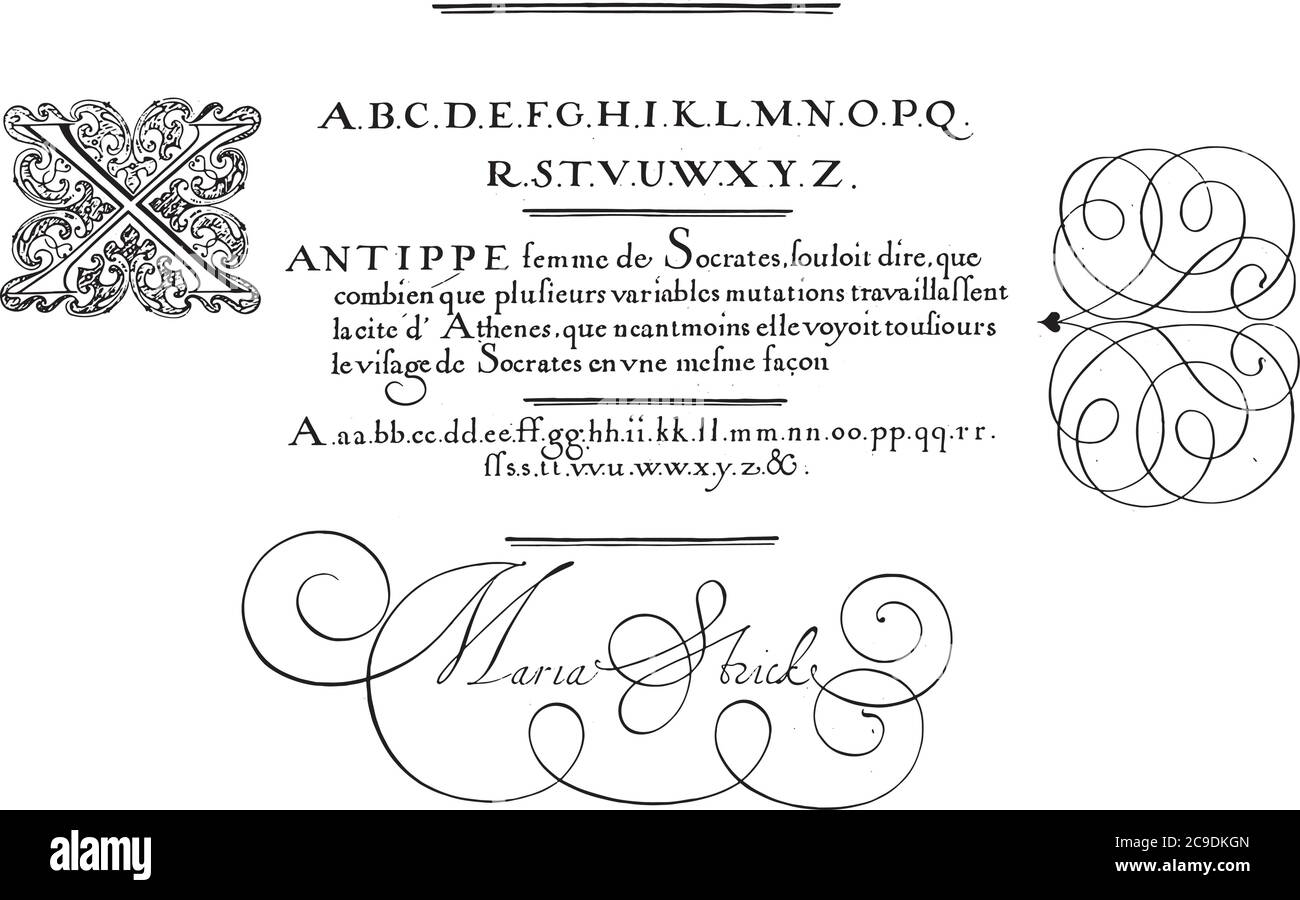 A.B.C.D.E.F.G.H.I.K.L.M.N.O.P.Q.
R.S.T.V.U.W.X.Y.Z.
XANTIPPE femme de Socrates, ſouloit dire, que
combien que pluſieurs variables mutations travaillaſſent
la cité d' Athenes, que neantmoins elle voyoit touſiours
le viſage de Socrates en vne meſme façon
A.aa.bb.cc.dd.ee.ff.gg.hh.ii.kk.ll.mm.nn.oo.pp.qq.rr.
ſſs.s.tt.v.v.u.w.w.x.y.z.&.
Maria Strick
alamy
Image ID: 2C9DKGN
www.alamy.com